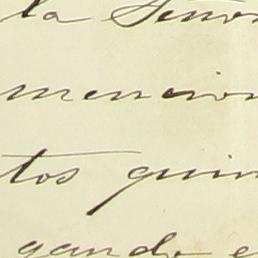 la Seño
mencion
tos quin
gando e